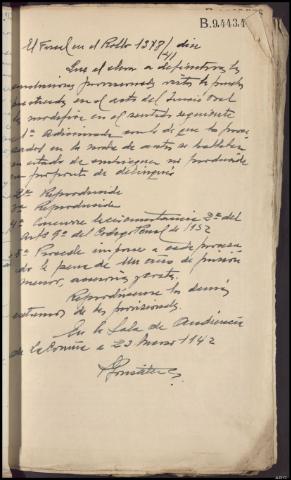 B.9.443.4
El Fiscal en el Rollo 1378/41 dice
Que eleva a definitivas las
conclusiones provisionales vista la prueba
practicada en el acto del Juicio Oral
las modifica en el sentido siguiente
1ª Adicionada en lo de que los proce
sados en la noche de autos se hallaban
en estado de embriaguez no producida
a propósito de delinquir
2ª Reproducida
3ª Reproducida
4ª Concurre la circunstancia 2ª del
Artº 9º del Código Penal de 1932
5ª Procede imponer a cada procesa
do la pena de un año de prisión
menor, accesorias y costas.
Reproduciéndose los demás
extremos de las provisionales.
En la Sala de Audiencia
de La Coruña a 23 Marzo 1942
González